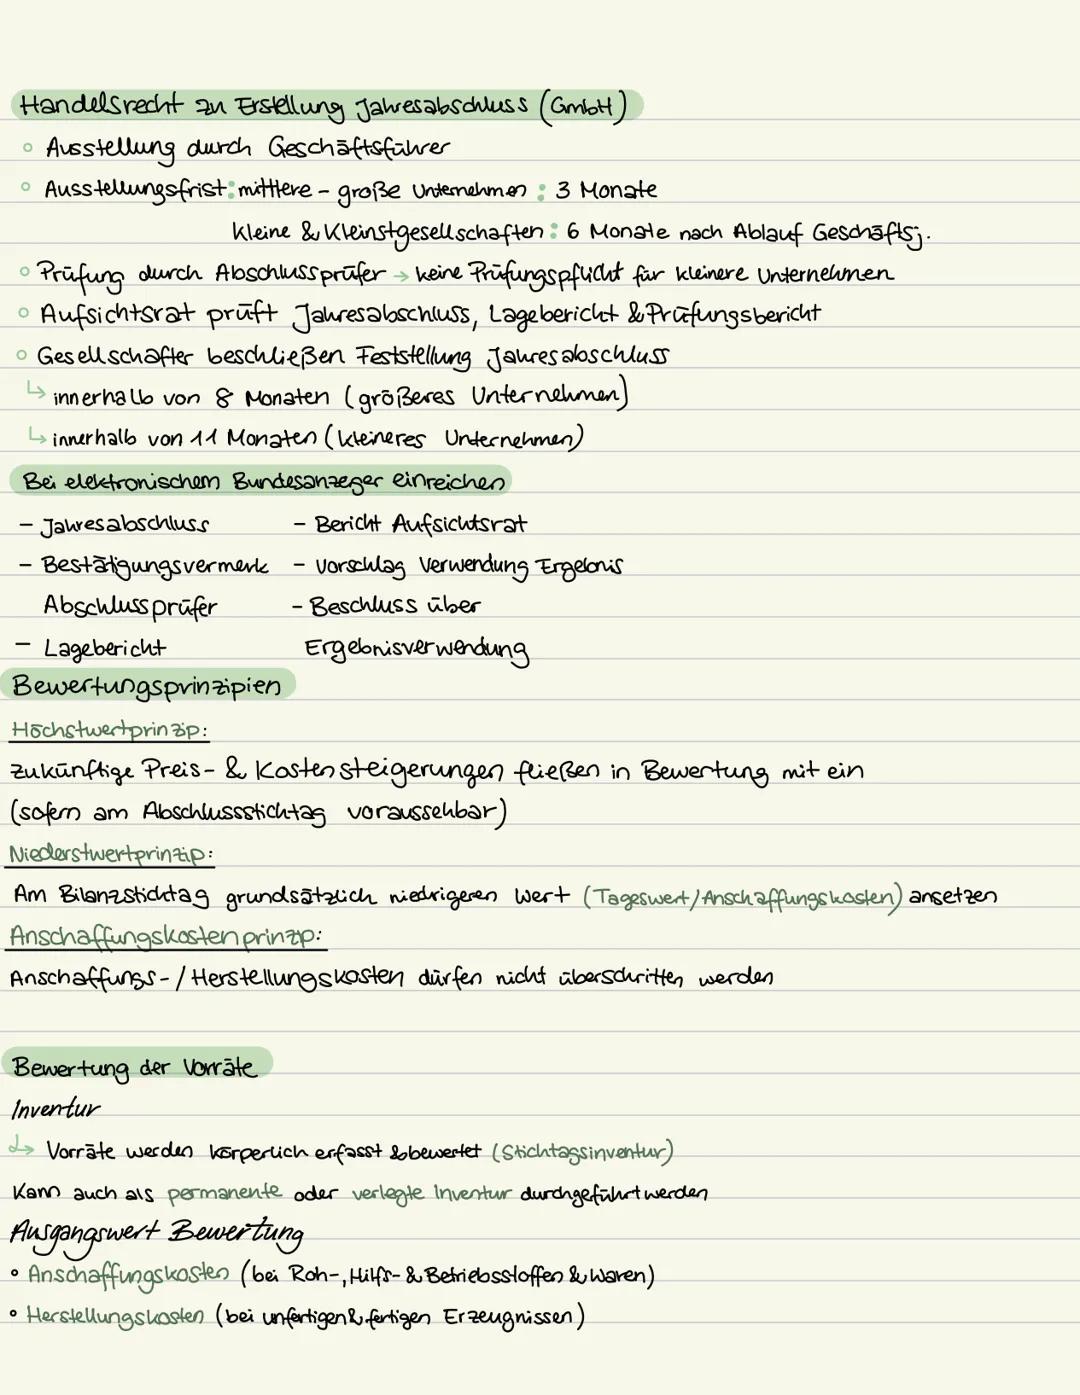 Handelsrecht zu Erstellung Jahresabschluss (GmbH)
◦ Ausstellung durch Geschäftsführer
◦ Ausstellungsfrist: mittlere - große Unternehmen : 3 Monate
Kleine & Kleinstgesellschaften : 6 Monate nach Ablauf Geschäftsj.
◦ Prüfung durch Abschlussprüfer → keine Prüfungspflicht für kleinere Unternehmen
◦ Aufsichtsrat prüft Jahresabschluss, Lagebericht & Prüfungsbericht
◦ Gesellschafter beschließen Feststellung Jahresabschluss
↳ innerhalb von 8 Monaten (größeres Unternehmen)
↳ innerhalb von 11 Monaten (kleineres Unternehmen)
Bei elektronischem Bundesanzeger einreichen
- Jahresabschluss - Bericht Aufsichtsrat
- Bestätigungsvermerk - Vorschlag Verwendung Ergebnis
Abschlussprüfer - Beschluss über
- Lagebericht Ergebnisverwendung
Bewertungsprinzipien
Höchstwertprinzip:
Zukünftige Preis- & Kostensteigerungen fließen in Bewertung mit ein
(sofern am Abschlussstichtag voraussehbar)
Niederstwertprinzip:
Am Bilanzstichtag grundsätzlich niedrigeren Wert (Tageswert/Anschaffungskosten) ansetzen
Anschaffungskostenprinzp:
Anschaffungs-/Herstellungskosten dürfen nicht überschritten werden
Bewertung der Vorräte
Inventur
↳ Vorräte werden körperlich erfasst & bewertet (Stichtagsinventur)
Kann auch als permanente oder verlegte Inventur durchgeführt werden
Ausgangswert Bewertung
• Anschaffungskosten (bei Roh-, Hilfs- & Betriebsstoffen & Waren)
• Herstellungskosten (bei unfertigen & fertigen Erzeugnissen)